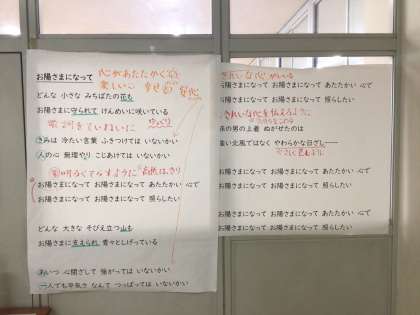 お陽さまになって
心があたたかく
楽しい心
安心
どんな 小さな みちばたの花も
お陽さまに 守られて けんめいに咲いている
ゆっくり
きみは 冷たい言葉 ふきつけては いないかい
人の心 無理やり こじあけては いないかい
お陽さまになって お陽さまになって あたたかい 心で
お陽さまになって お陽さまになって 照らしたい
どんな 大きな そびえ立つ山も
お陽さまに 支えられ 青々としげっている
あいつ 心閉ざして 強がっては いないかい
一人でも平気さ なんて つっぱっては いないかい
きれいな心
お陽さまになって お陽さまになって あたたかい 心で
お陽さまになって お陽さまになって 照らしたい
きれいな心を伝えるように
の男の上着 ぬがせたのは
北風ではなく やわらかな日ざし
お陽さまになって お陽さまになって あたたかい 心で
お陽さまになって お陽さまになって 照らしたい
お陽さまになって お陽さまになって あたたかい 心で
お陽さまになって お陽さまになって 照らしたい